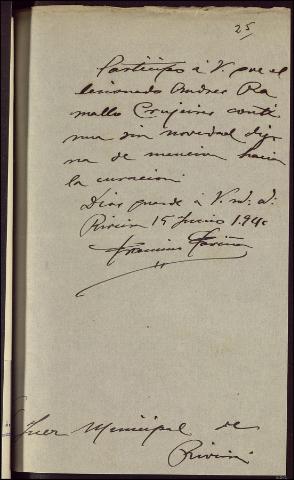 25
Participo á V. que el
lesionado Andres Ra
mallo Crujeiras conti
nua sin novedad dig
na de mencion hacia
la curacion
Dios guarde á V. m. a.
15 Junio 1.940
Francisco Fariña
Juez Municipal de